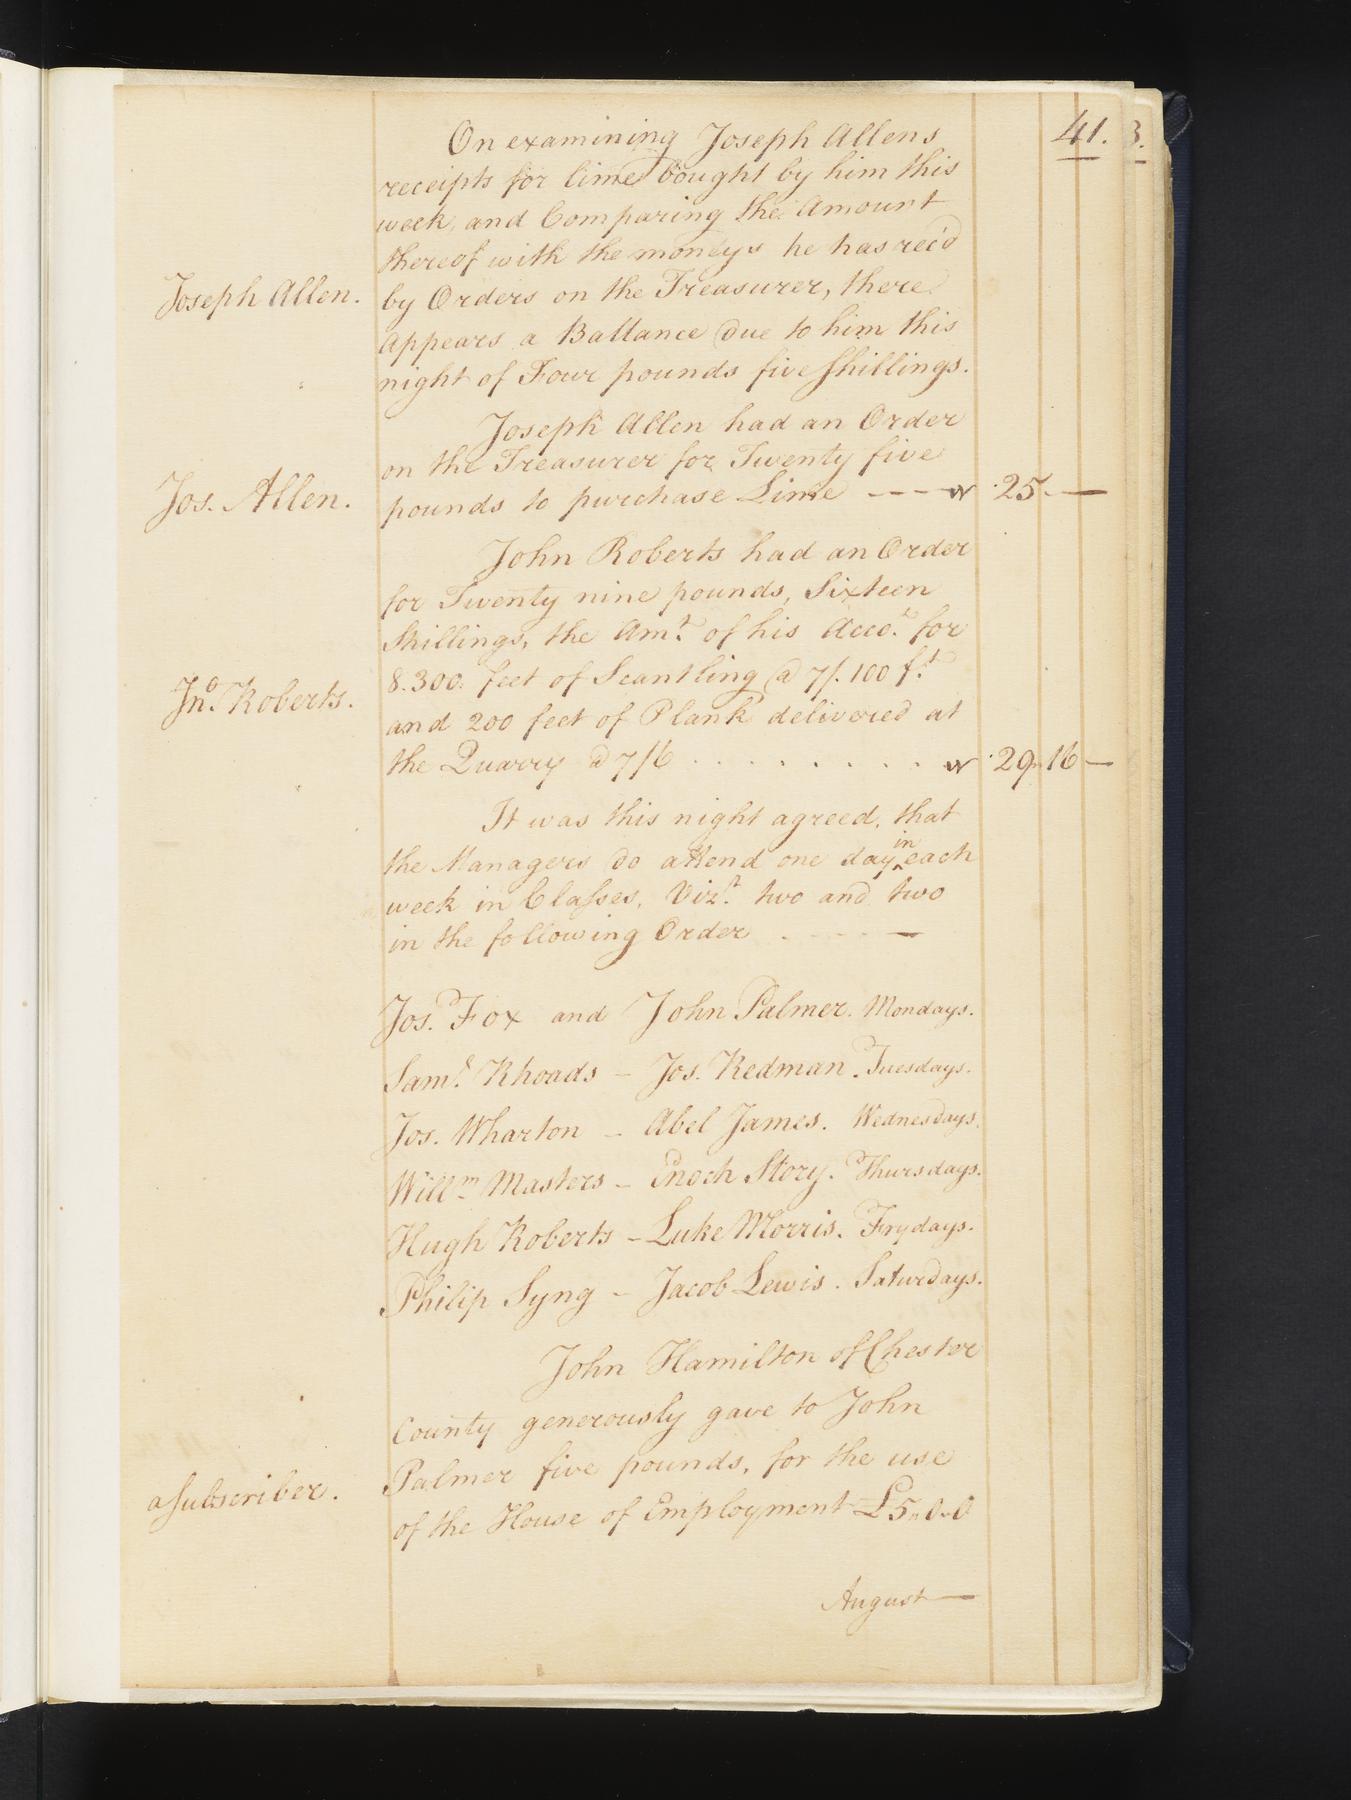 41.
3.
On examining Joseph Allens
receipts for lime bought by him this
week, and Comparing the Amount
thereof with the moneys he has rec'd
Joseph Allen.
by Orders on the Treasurer, there
appears a Ballance due to him this
night of Four pounds five Shillings.
Joseph Allen had an Order
on the Treasurer for Twenty five
Jos. Allen.
pounds to purchase Lime - - - 25. —
John Roberts had an Order
for Twenty nine pounds, Sixteen
Shillings, the Amt. of his Acco.t for
8.300. feet of Scantling @ 7/. 100 f.t
Jno. Roberts.
and 200 feet of Plank delivered at
the Quarry @ 7/6 . . . . . . . . . 29 16 —
It was this night agreed, that
the Managers do attend one day in each
week in Classes, Vizt. two and two
in the following Order . - - - —
Jos. Fox and John Palmer. Mondays.
Saml. Rhoads – Jos. Redman. Tuesdays.
Jos. Wharton – Abel James. Wednesdays.
Willm Masters – Enoch Story. Thursdays.
Hugh Roberts – Luke Morris. Frydays.
Philip Syng – Jacob Lewis. Saturdays.
John Hamilton of Chester
County generously gave to John
Palmer five pounds, for the use
a Subscriber.
of the House of Employment £5"0"0
August —